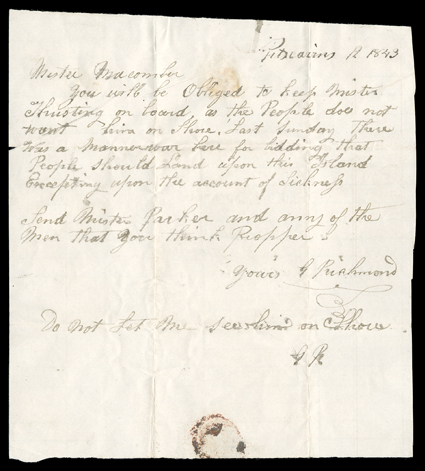 Pitcairns 12 1843
Mister Macomber
You will be Obliged to keep Mister
Thusting on board, as the People does not
want him on Shore. Last Sunday There
was a Mannerwar here for bidding that
People should Land upon this Island
Excepting upon the account of Sickness
Send Mister Parker and anny of the
Men that you think Propper
Yours G Richmond
Do not Let me see him on Shore
G R